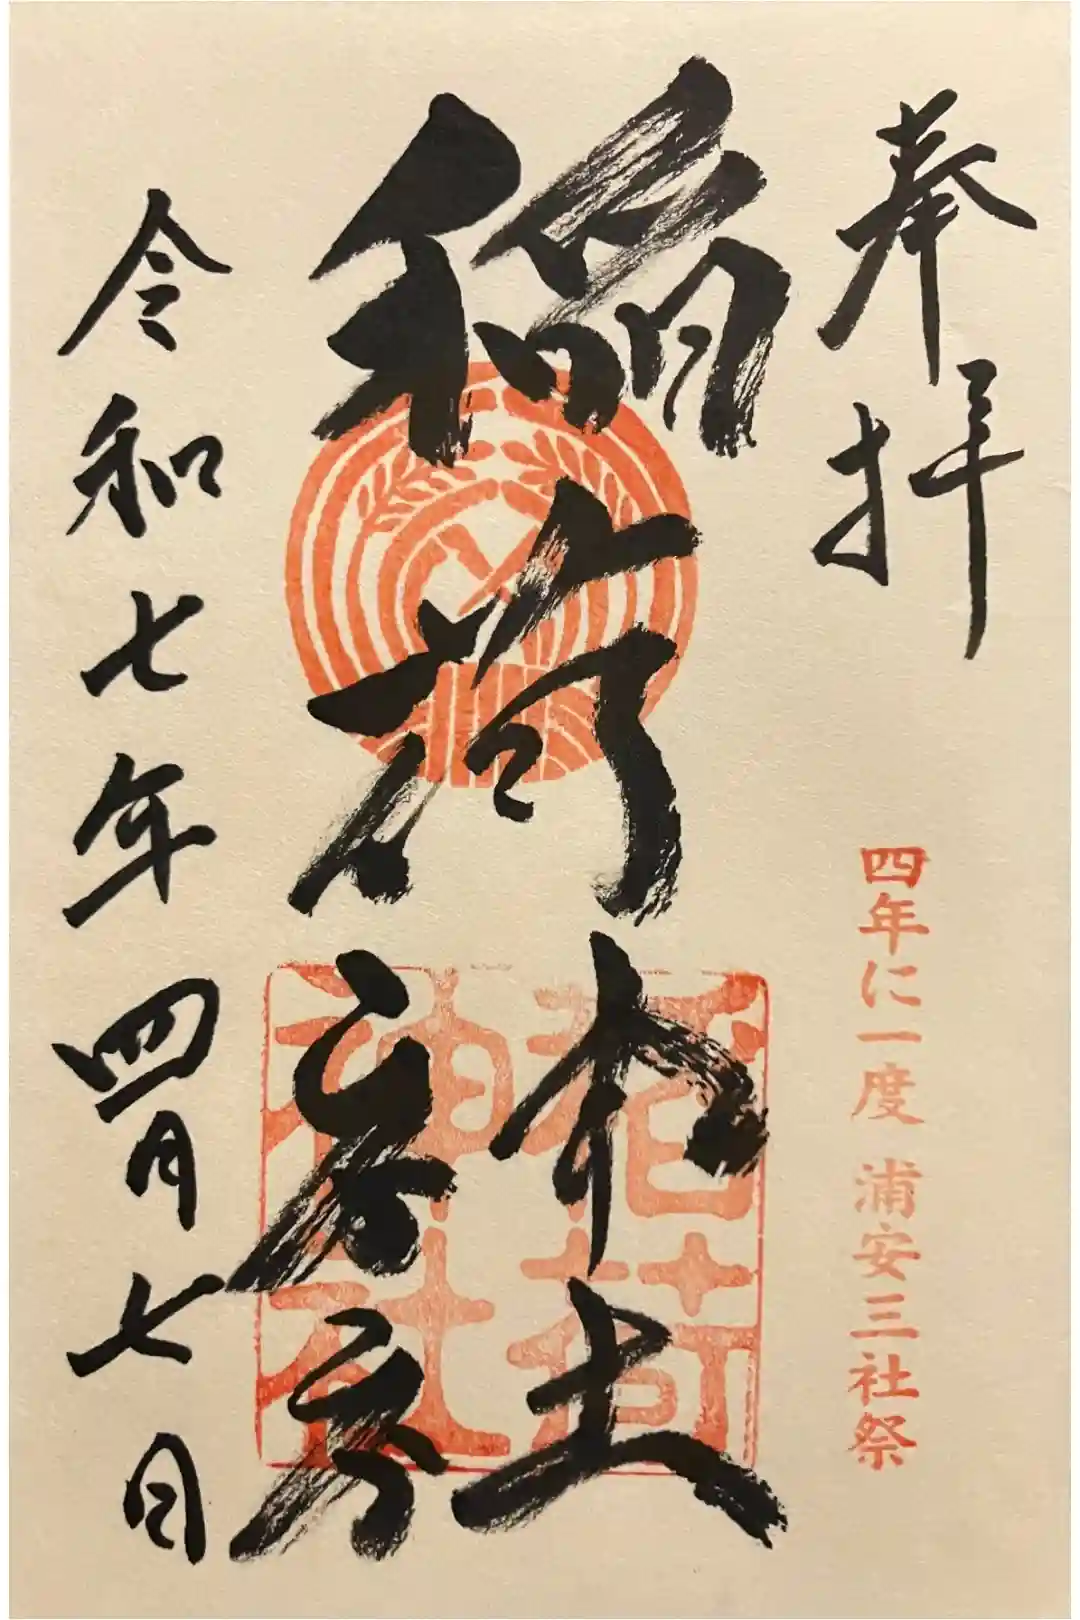 奉拝
四年に一度 浦安三社祭
稲荷神社
稲荷神社
令和七年四月七日